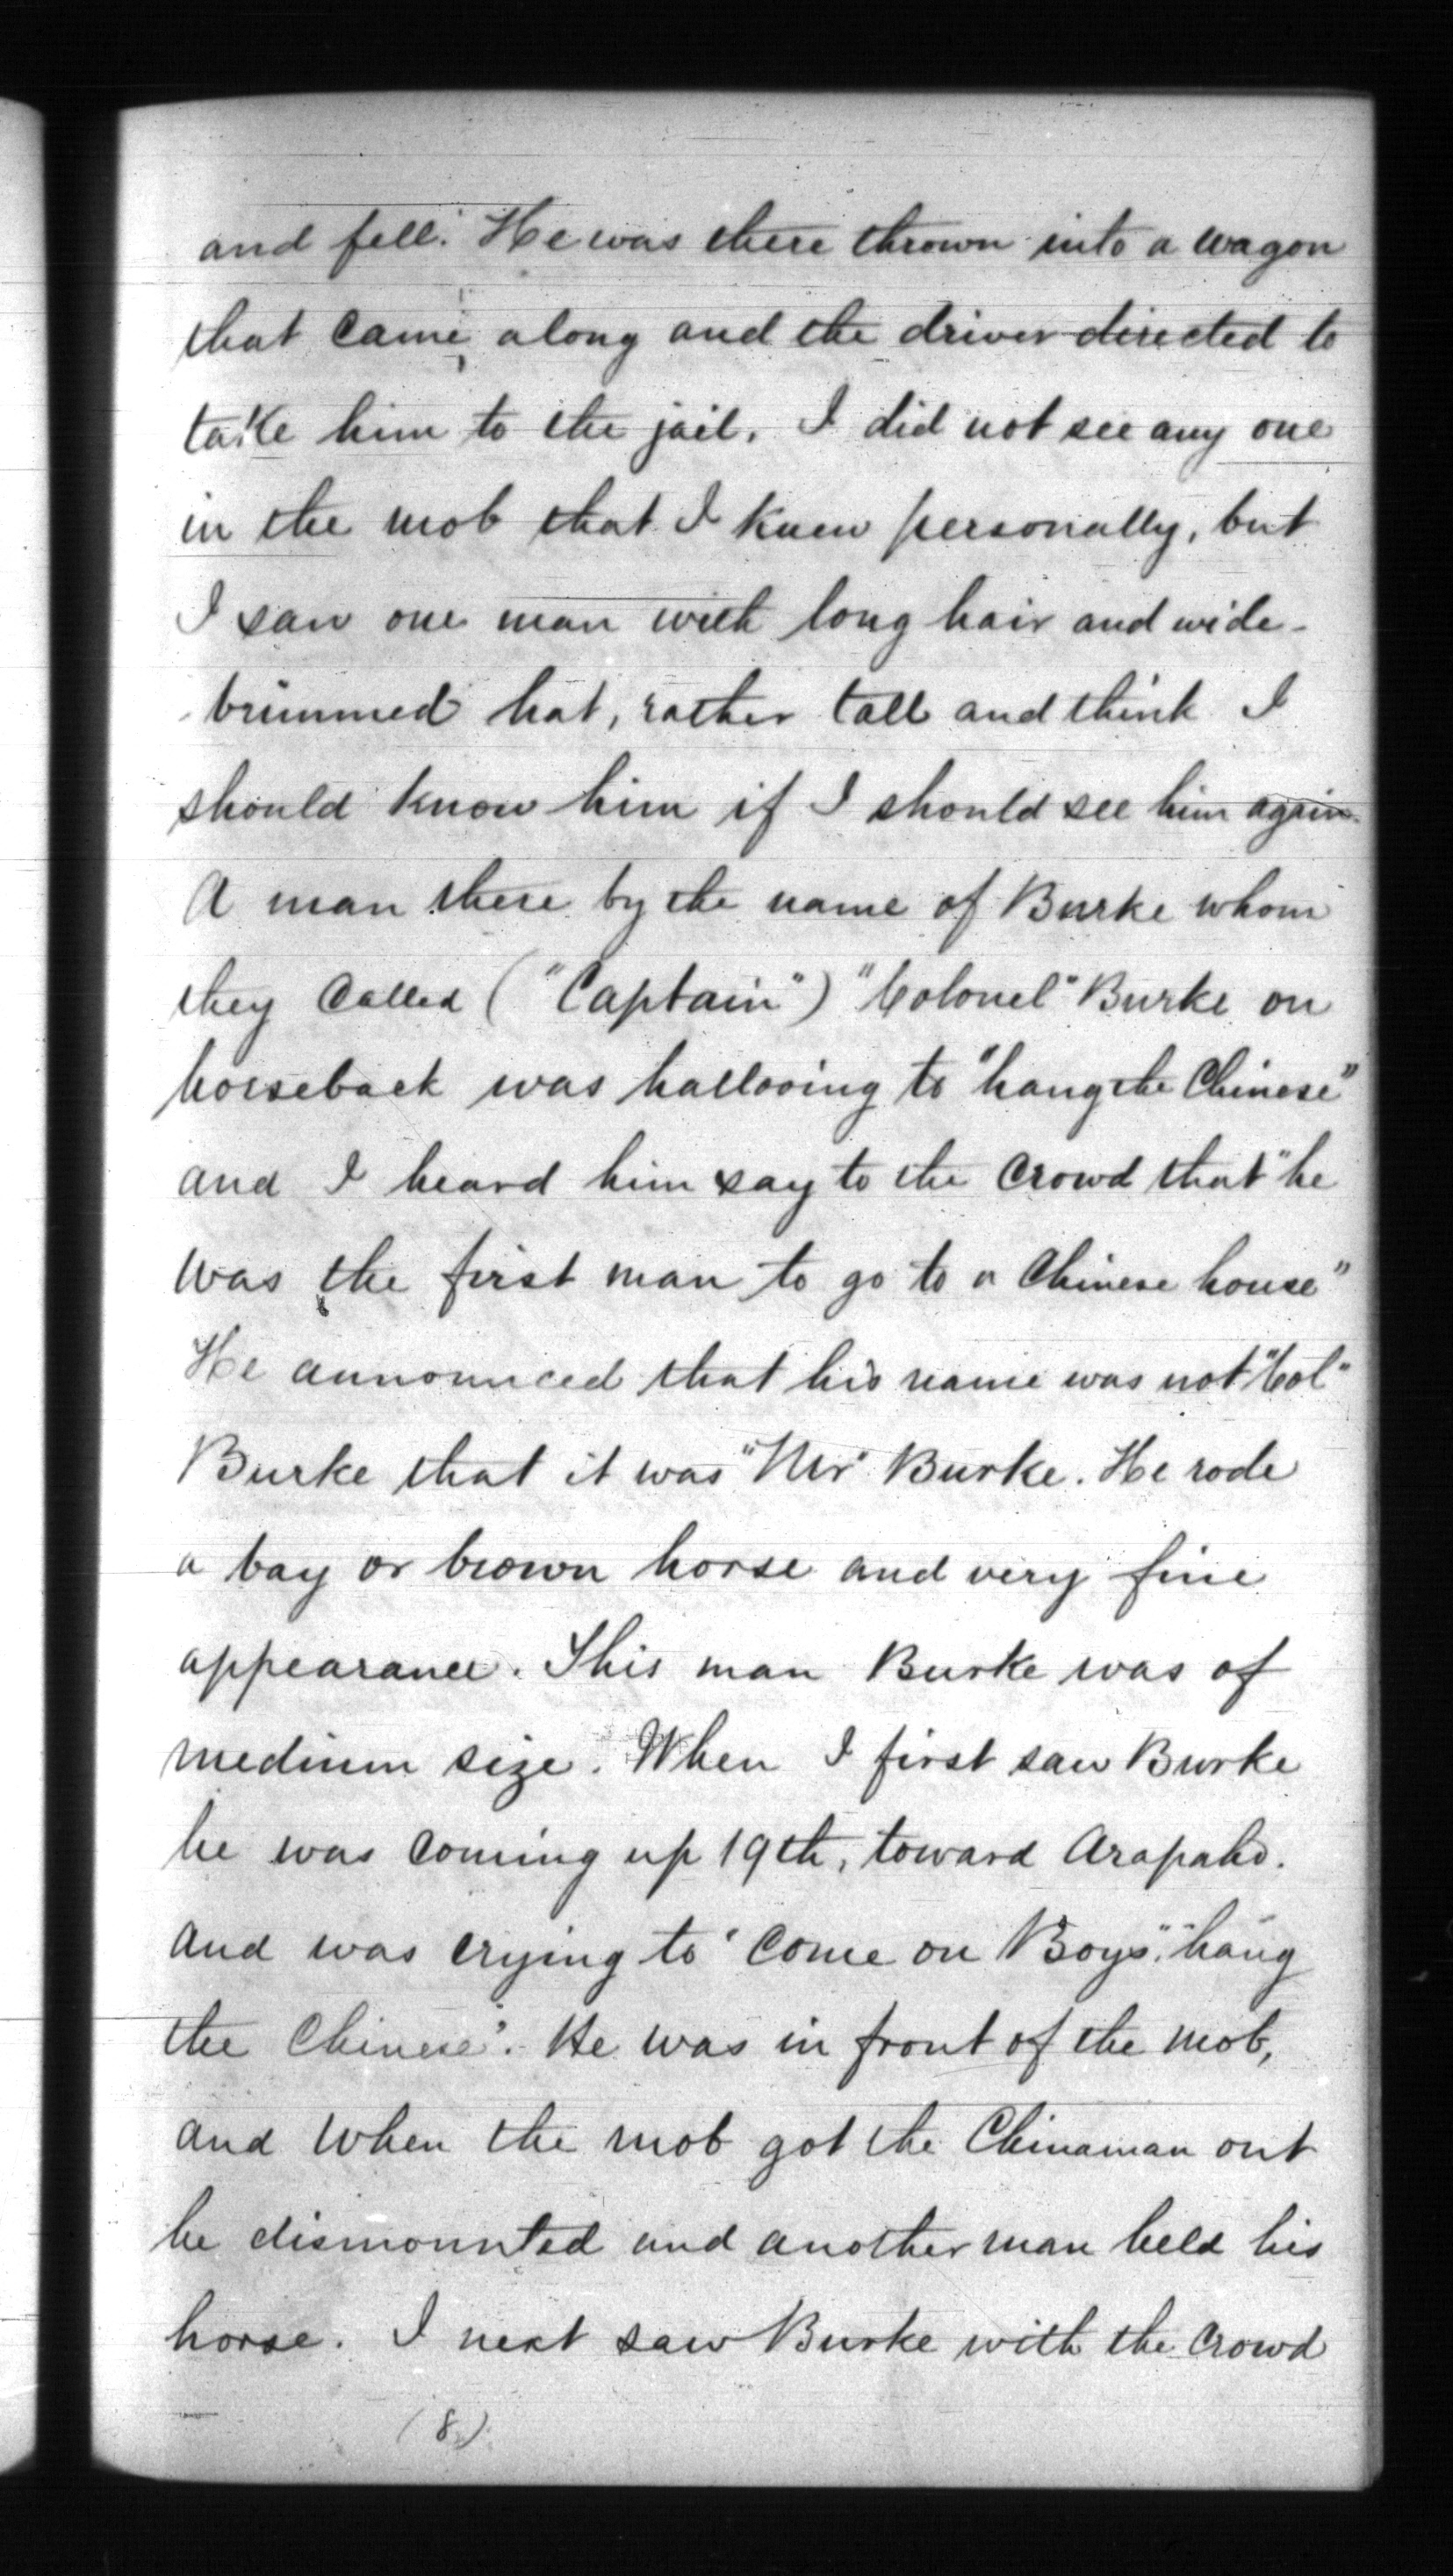 and fell. He was there thrown into a wagon
that came along and the driver directed to
take him to the jail. I did not see any one
in the mob that I knew personally, but
I saw one man with long hair and wide-
brimmed hat, rather tall and think I
should know him if I should see him again.
A man there by the name of Burke whom
they called ("Captain") "Colonel" Burke on
horseback was hallooing to "hang the Chinese"
and I heard him say to the crowd that "he
was the first man to go to a Chinese house"
He announced that his name was not "Col"
Burke that it was "Mr" Burke. He rode
a bay or brown horse and very fine
appearance. This man Burke was of
medium size. When I first saw Burke
he was coming up 19th, toward Arapaho.
and was crying to "Come on Boys" "hang
the Chinese". He was in front of the mob,
and when the mob got the Chinaman out
he dismounted and another man held his
horse. I next saw Burke with the crowd
(8)